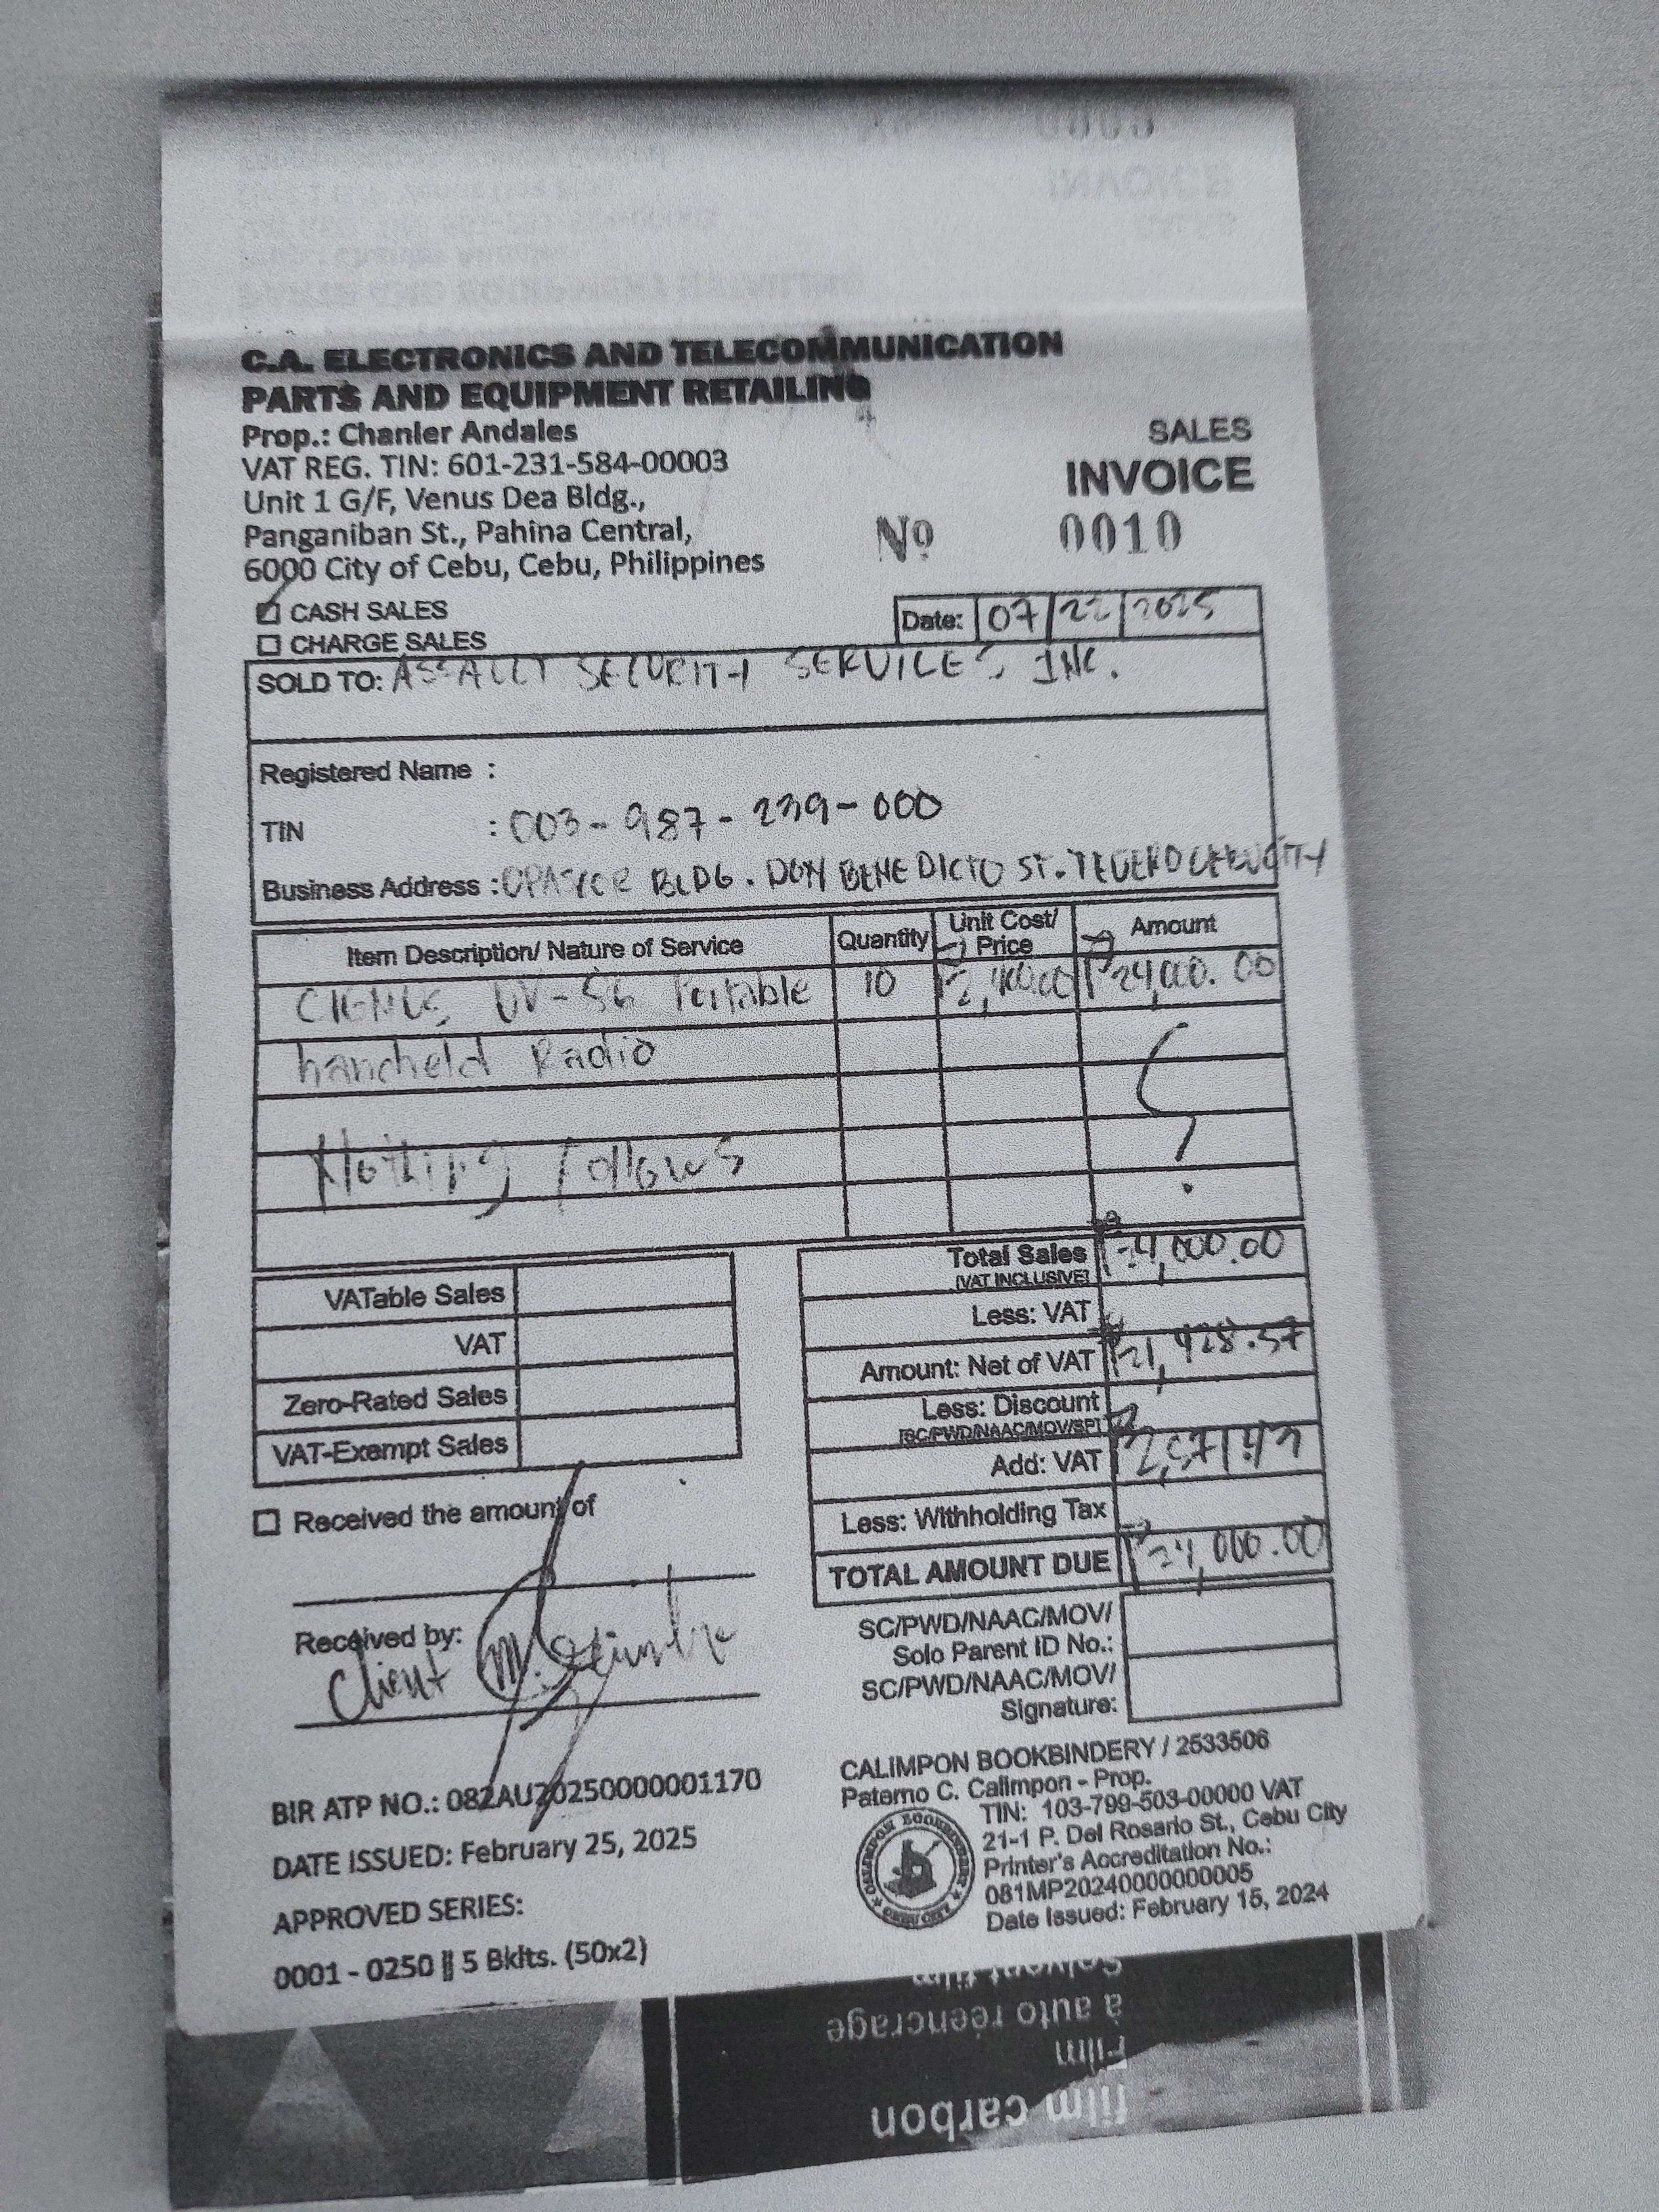 C.A. ELECTRONICS AND TELECOMMUNICATION
PARTS AND EQUIPMENT RETAILING
Prop.: Chanler Andales
VAT REG. TIN: 601-231-584-00003
Unit 1 G/F, Venus Dea Bldg.,
Panganiban St., Pahina Central,
6000 City of Cebu, Cebu, Philippines
SALES
INVOICE
Nº 0010
CASH SALES
CHARGE SALES
Date: 07 22 2025
SOLD TO: ASSAULT SECURITY SERVICES INC.
Registered Name :
TIN : 003-987-239-000
Business Address : OPASCOR BLDG. DON BENEDICTO ST. TEJERO CEBU CITY
Item Description/ Nature of Service Quantity Unit Cost/ Price Amount
CIGNUS UV-56 Portable 10 ₱2,400.00 ₱24,000.00
handheld Radio
Nothing follows
Total Sales ₱24,000.00
[VAT INCLUSIVE]
Less: VAT
Amount: Net of VAT ₱21,428.57
Less: Discount
[SC/PWD/NAAC/MOV/SP]
Add: VAT ₱2,571.43
Less: Withholding Tax
TOTAL AMOUNT DUE ₱24,000.00
VATable Sales
VAT
Zero-Rated Sales
VAT-Exempt Sales
Received the amount of
Received by:
Client
SC/PWD/NAAC/MOV/
Solo Parent ID No.:
SC/PWD/NAAC/MOV/
Signature:
BIR ATP NO.: 082AU20250000001170
DATE ISSUED: February 25, 2025
APPROVED SERIES:
0001 - 0250 || 5 Bklts. (50x2)
CALIMPON BOOKBINDERY / 2533506
Paterno C. Calimpon - Prop.
TIN: 103-799-503-00000 VAT
21-1 P. Del Rosario St., Cebu City
Printer's Accreditation No.:
081MP20240000000005
Date Issued: February 15, 2024
CALIMPON BOOKBINDERY
CEBU CITY
film carbon
Film
à auto réencrage